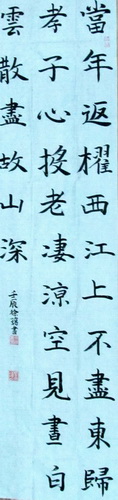 當年返櫂西江上不盡東歸
孝子心投老凄涼空見晝白
雲散盡故山深
壬辰徐書